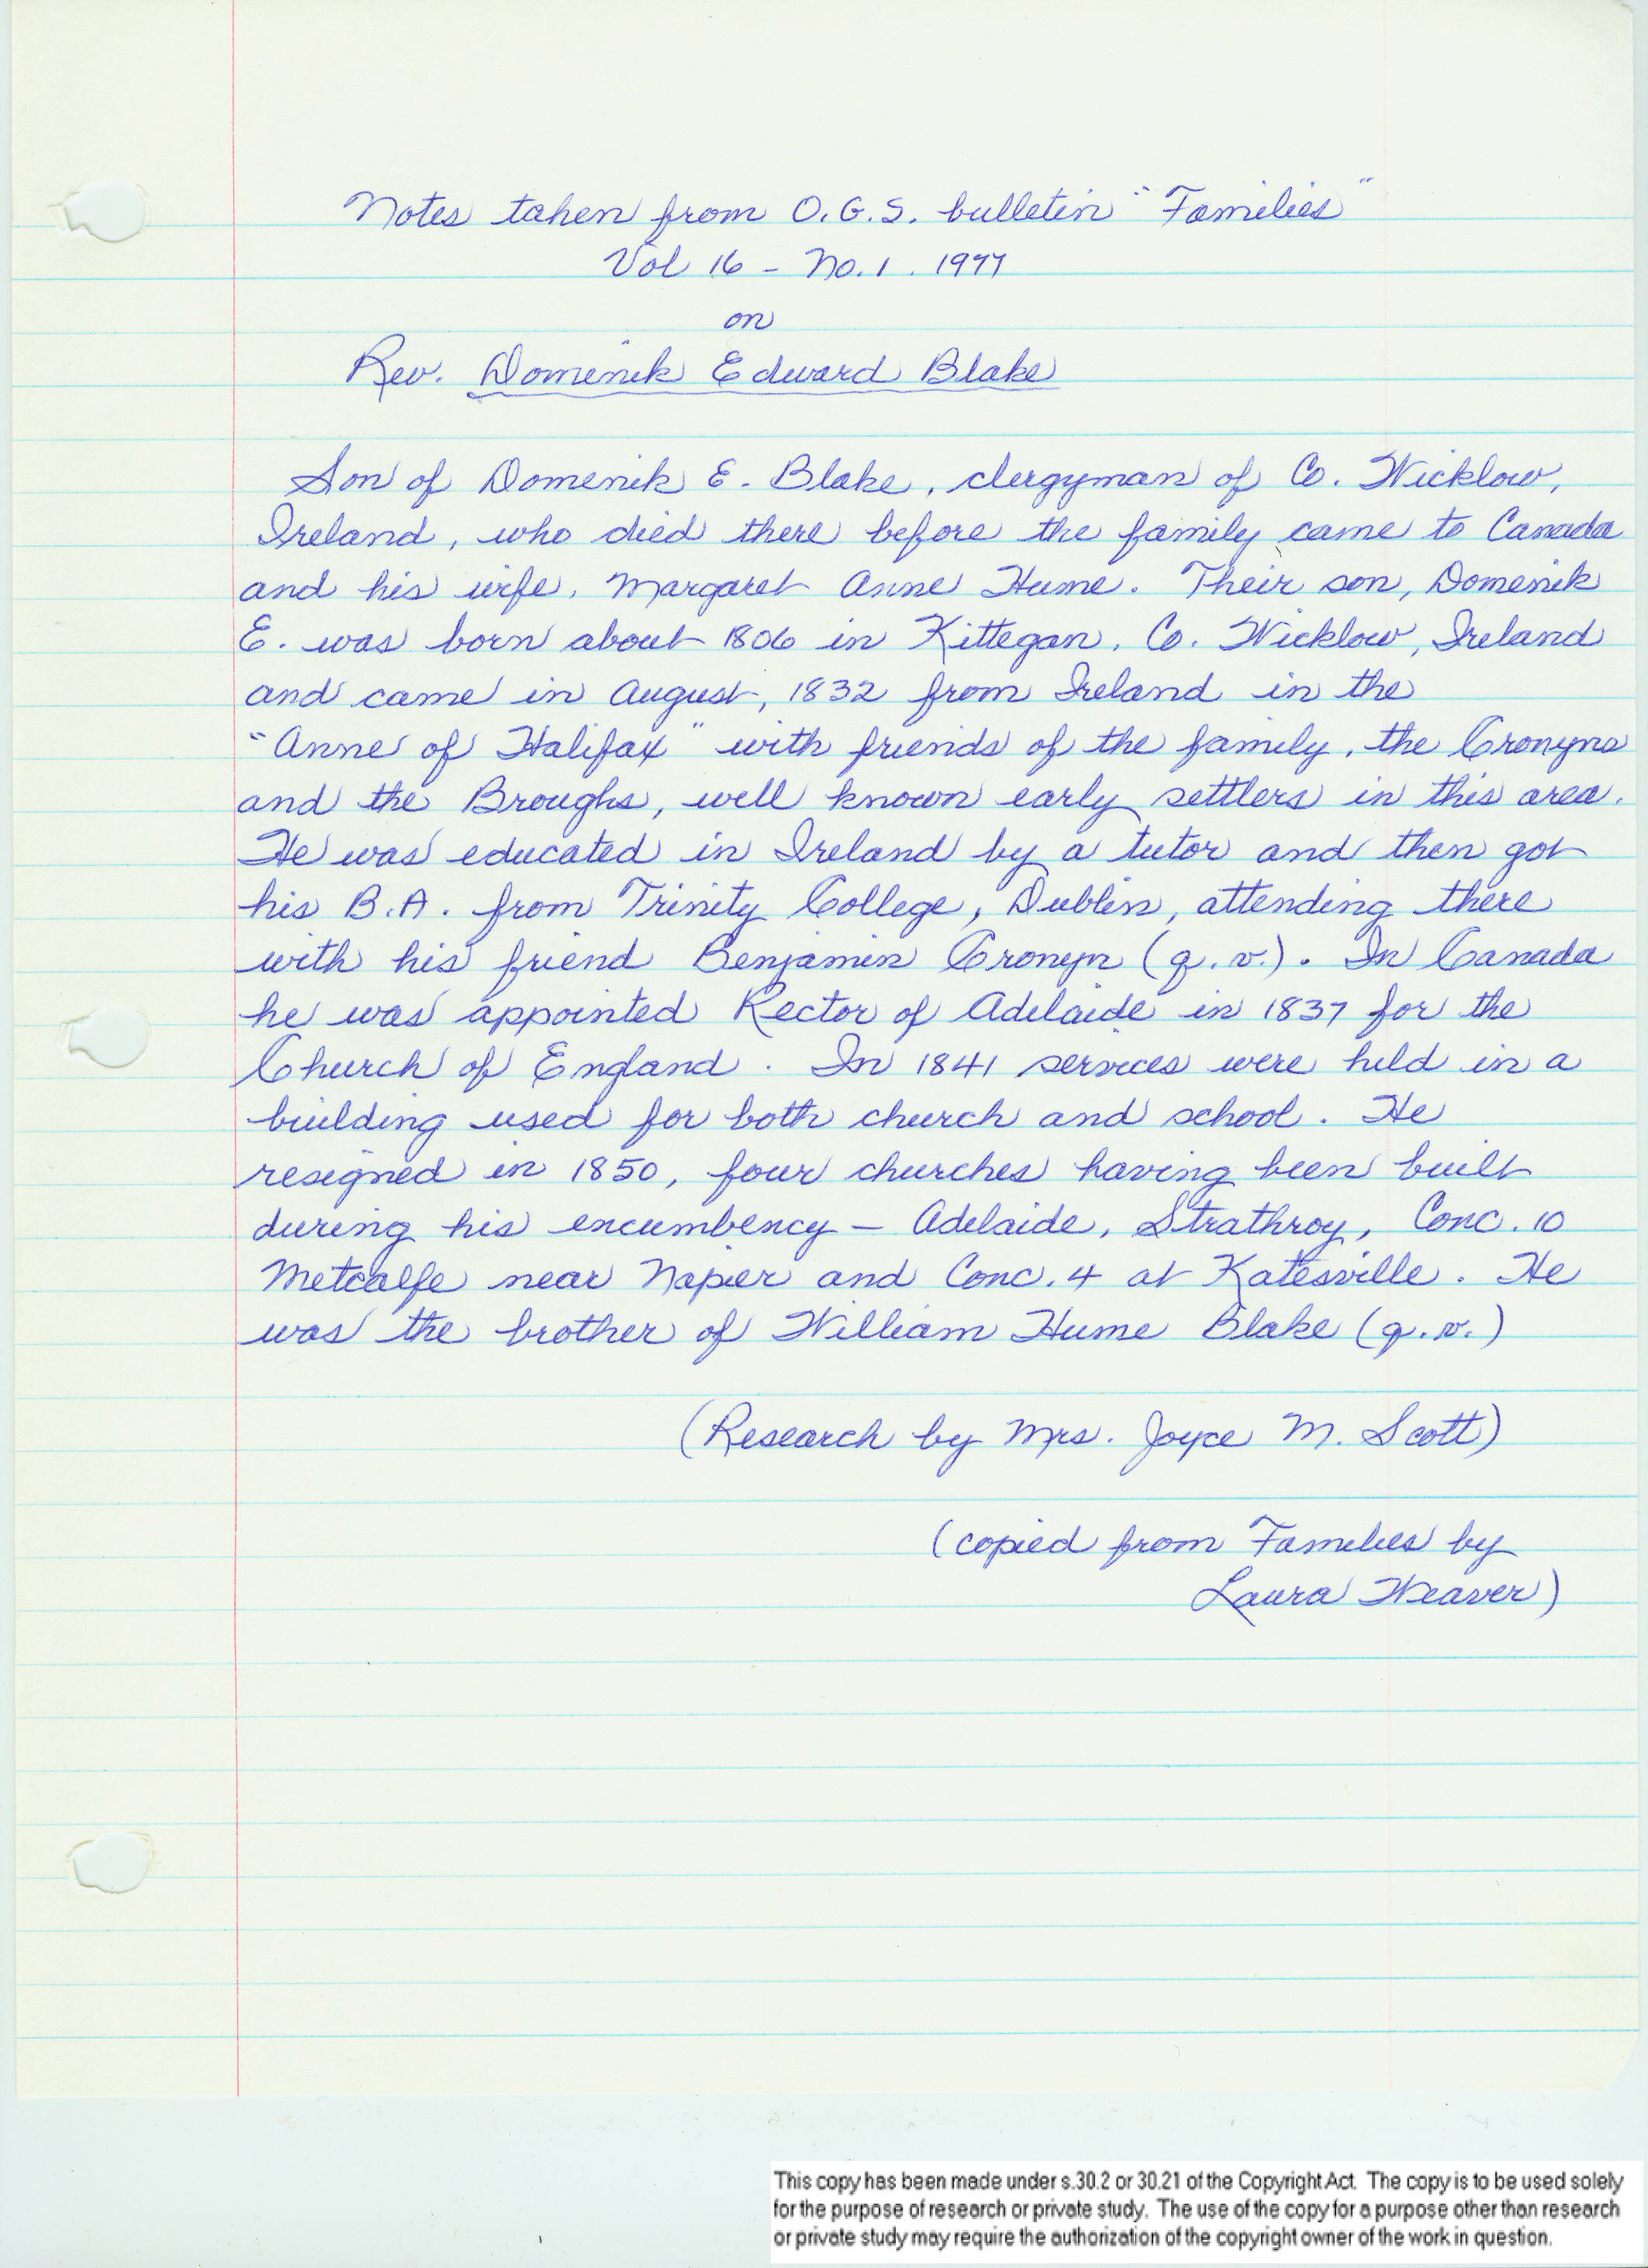 Notes taken from O.G.S. bulletin "Families"
Vol 16 - No. 1. 1977
on
Rev. Domenik Edward Blake
Son of Domenik E. Blake, clergyman of Co. Wicklow,
Ireland, who died there before the family came to Canada
and his wife, Margaret Anne Hume. Their son, Domenik
E. was born about 1806 in Kittegan, Co. Wicklow, Ireland
and came in August, 1832 from Ireland in the
"Anne of Halifax" with friends of the family, the Cronyns
and the Broughs, well known early settlers in this area.
He was educated in Ireland by a tutor and then got
his B.A. from Trinity College, Dublin, attending there
with his friend Benjamin Cronyn (q.v.). In Canada
he was appointed Rector of Adelaide in 1837 for the
Church of England. In 1841 services were held in a
building used for both church and school. He
resigned in 1850, four churches having been built
during his encumbency - Adelaide, Strathroy, Conc. 10
Metcalfe near Napier and Conc. 4 at Katesville. He
was the brother of William Hume Blake (q.v.)
(Research by Mrs. Joyce M. Scott)
(copied from Families by
Laura Weaver)
This copy has been made under s.30.2 or 30.21 of the Copyright Act. The copy is to be used solely
for the purpose of research or private study. The use of the copy for a purpose other than research
or private study may require the authorization of the copyright owner of the work in question.